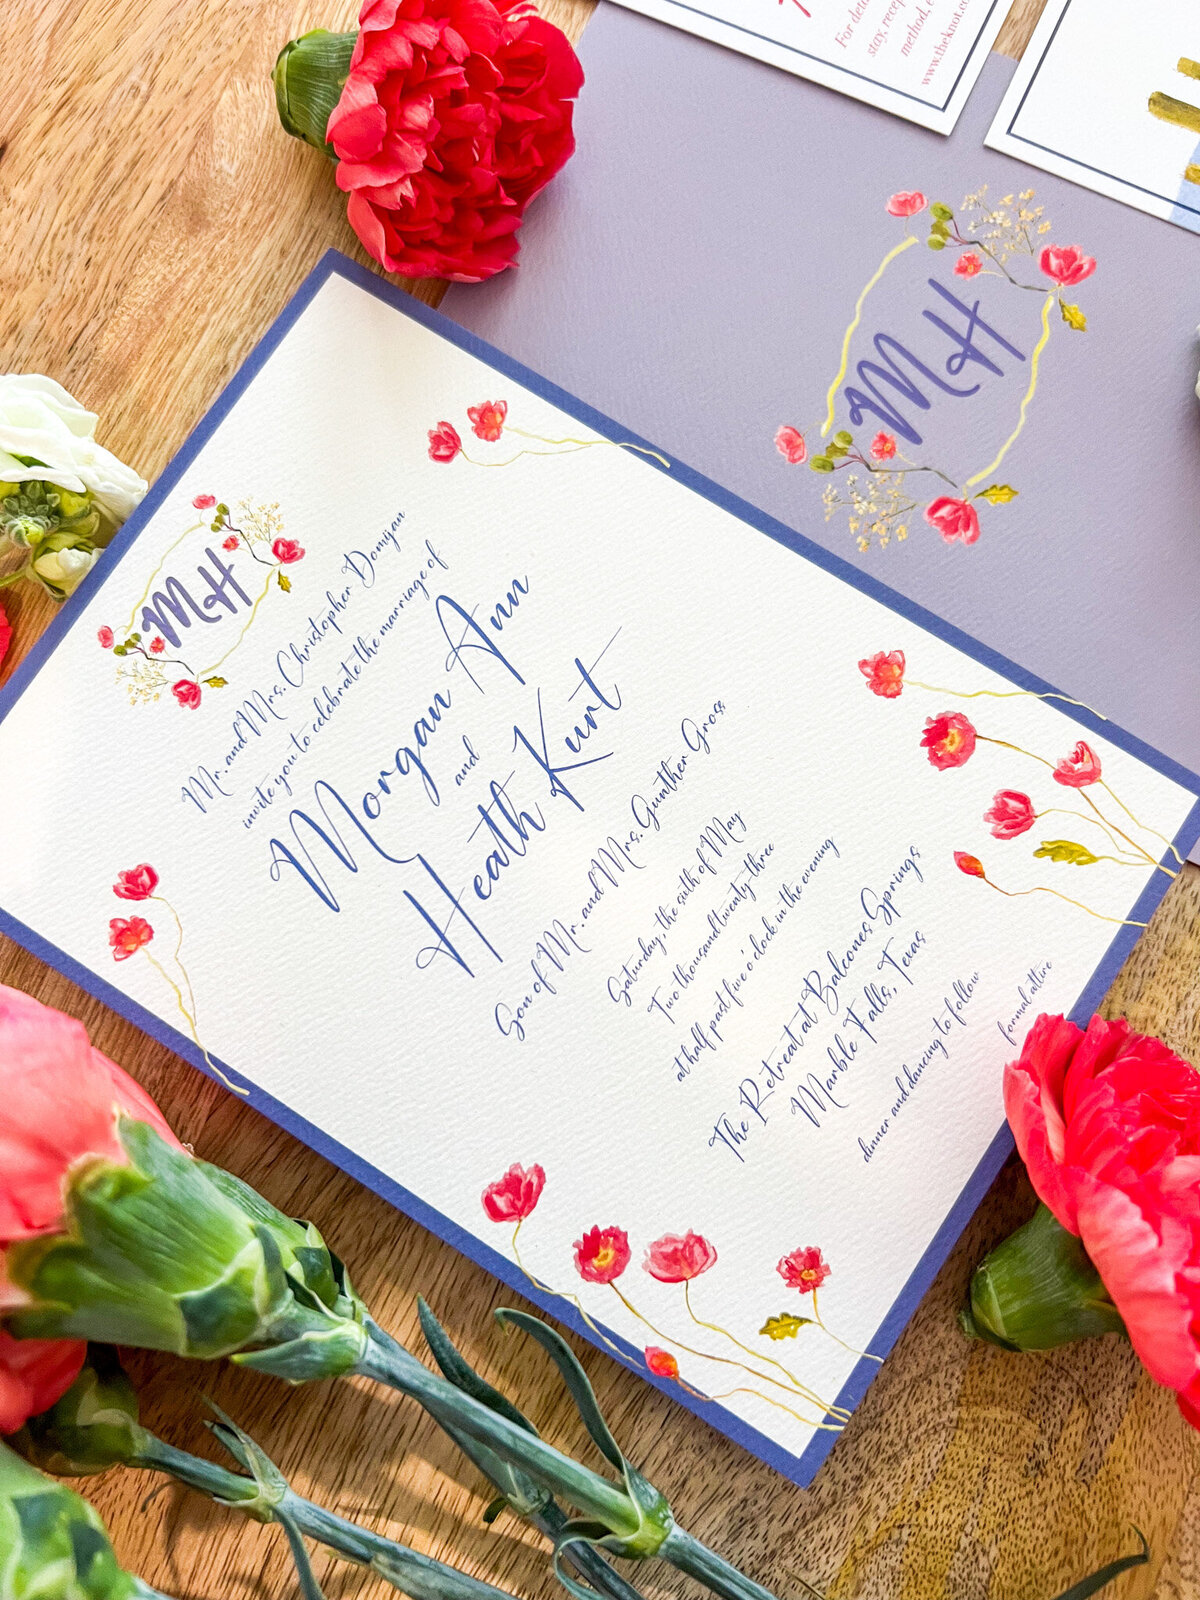 For
stay,
method,
www.theknot.co
MH
MH
Mr. and Mrs. Christopher Domijan
invite you to celebrate the marriage of
Morgan Ann
and
Heath Kurt
Son of Mr. and Mrs. Gunther Gross
Saturday, the sixth of May
Two thousand twenty-three
at half past five o'clock in the evening
The Retreat at Balcones Springs
Marble Falls, Texas
dinner and dancing to follow
formal attire